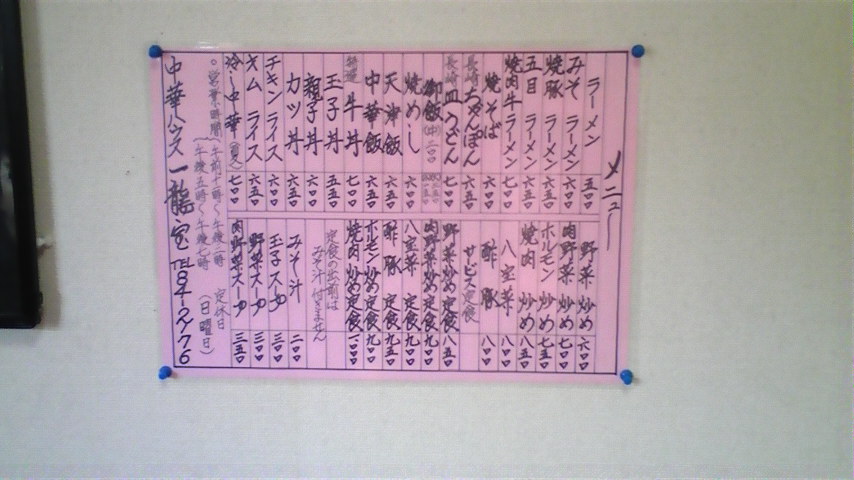 メニュー
ラーメン 五〇〇
みそラーメン 六〇〇
焼豚ラーメン 六五〇
五目ラーメン 六五〇
焼肉牛ラーメン 七〇〇
焼そば 六〇〇
長崎ちゃんぽん 六五〇
長崎皿うどん 七〇〇
御飯(中)二〇〇
焼めし 六〇〇
天津飯 六五〇
中華飯 六五〇
特選牛丼 七〇〇
玉子丼 五五〇
親子丼 六〇〇
カツ丼 六五〇
チキンライス 六〇〇
オムライス 六五〇
冷し中華 七〇〇
野菜炒め 六〇〇
肉野菜炒め 七〇〇
ホルモン炒め 七五〇
焼肉炒め 八五〇
八宝菜 八〇〇
酢豚 八〇〇
サービス定食
野菜炒め定食 八五〇
肉野菜炒め定食 九〇〇
八宝菜定食 九〇〇
酢豚定食 九五〇
ホルモン炒め定食 九〇〇
焼肉炒め定食 一〇〇〇
定食の出前は
みそ汁付きません
みそ汁 二〇〇
玉子スープ 三〇〇
野菜スープ 三〇〇
肉野菜スープ 三五〇
○営業時間 午前十一時〜午後二時 定休日
午後五時〜午後七時 (日曜日)
中華ハウス一龍宝 TEL84-2176